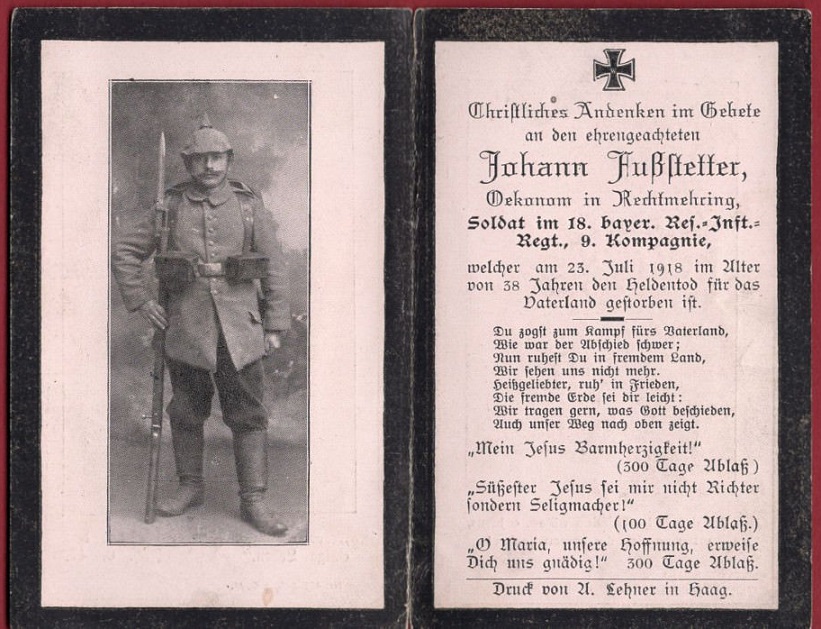 Christliches Andenken im Gebete
an den ehrengeachteten
Johann Fußstetter,
Oekonom in Rechtmehring,
Soldat im 18. bayer. Res.-Inft.-
Regt., 9. Kompagnie,
welcher am 23. Juli 1918 im Alter
von 38 Jahren den Heldentod für das
Vaterland gestorben ist.
Du zogst zum Kampf fürs Vaterland,
Wie war der Abschied schwer;
Nun ruhest Du in fremdem Land,
Wir sehen uns nicht mehr.
Heißgeliebter, ruh' in Frieden,
Die fremde Erde sei dir leicht:
Wir tragen gern, was Gott beschieden,
Auch unser Weg nach oben zeigt.
„Mein Jesus Barmherzigkeit!"
(300 Tage Ablaß)
„Süßester Jesus sei mir nicht Richter
sondern Seligmacher!"
(100 Tage Ablaß.)
„O Maria, unsere Hoffnung, erweise
Dich uns gnädig!" 300 Tage Ablaß.
Druck von A. Lehner in Haag.